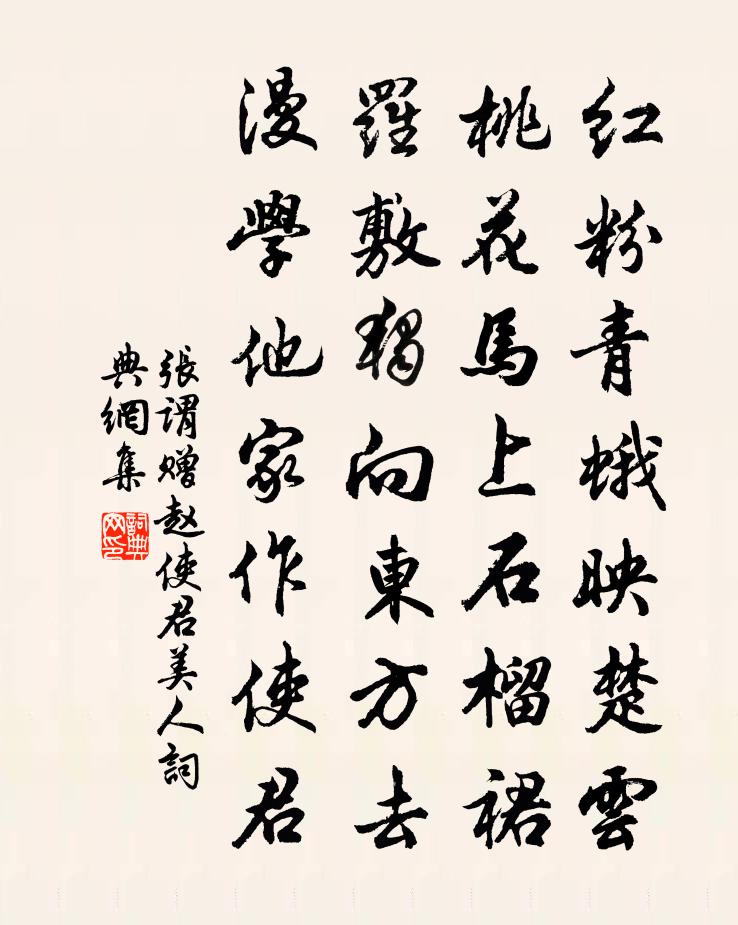 紅粉青蛾映楚雲
桃花馬上石榴裙
羅敷獨向東方去
漫學他家作使君
張謂贈赵使君美人詞
典網集
詞典
网印